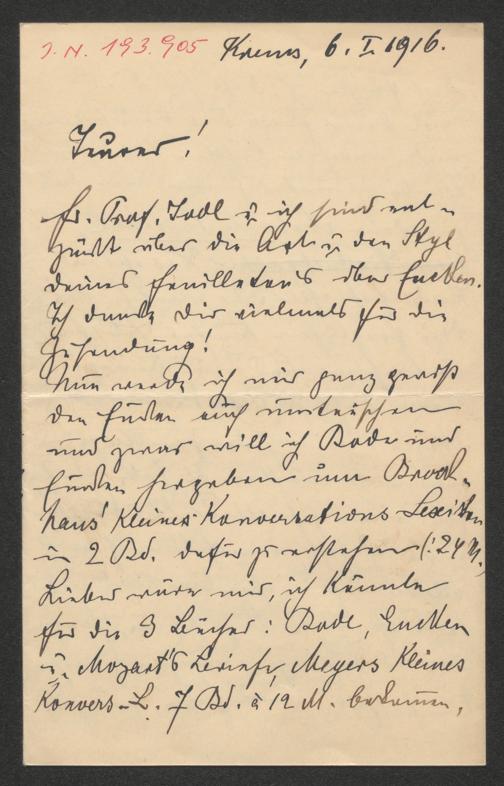 J. N. 193.905 Krems, 6. I. 1916.
Teurer!
Fr. Prof. Jodl u. ich sind ent-
zückt über die Art u. den Styl
deines Feuilletons über Eucken.
Ich danke Dir vielmals für die
Zusendung!
Nun werde ich mir ganz gewiß
den Eucken auch umtauschen
und zwar will ich Bode und
Eucken hergeben um Brock-
haus' kleines Konversations-Lexikon
in 2 Bd. dafür zu erstehen (: 24 M.
Lieber wäre mir, ich könnte
für die 3 Bücher: Bode, Eucken
u. Mozart's Briefe, Meyers kleines
Konvers.-L. 7 Bd. à 12 M. bekommen,